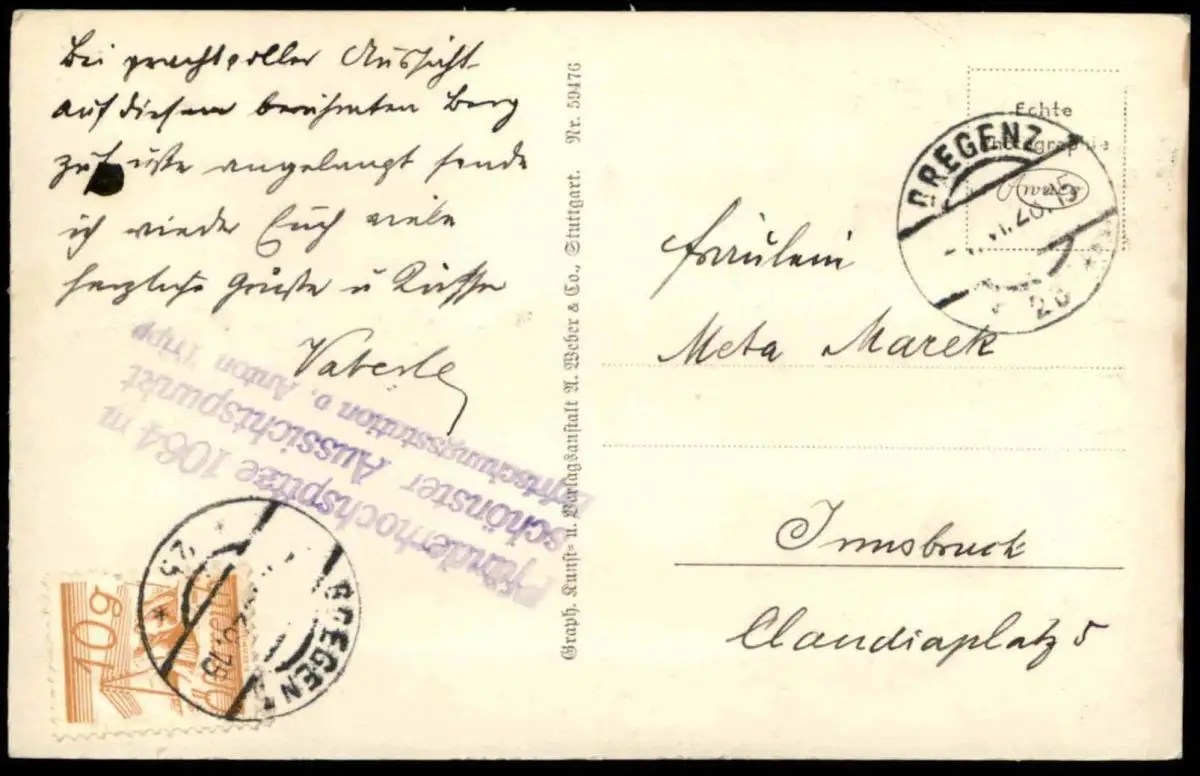 Bei prachtvoller Aussicht
auf diesem berühmten Berg
zu angelangt sende
ich wieder Euch viele
herzliche Grüße u Küsse
Vaterle
Pfänderhochspitze 1064 m
schönster Aussichtspunkt
Erfrischungsstation v. Anton Tripp
10g
BREGENZ
25
Graph. Kunst- u. Verlagsanstalt A. Weber & Co., Stuttgart. Nr. 59476
Echte
Photographie
BREGENZ
Fräulein
Meta Marek
Innsbruck
Claudiaplatz 5